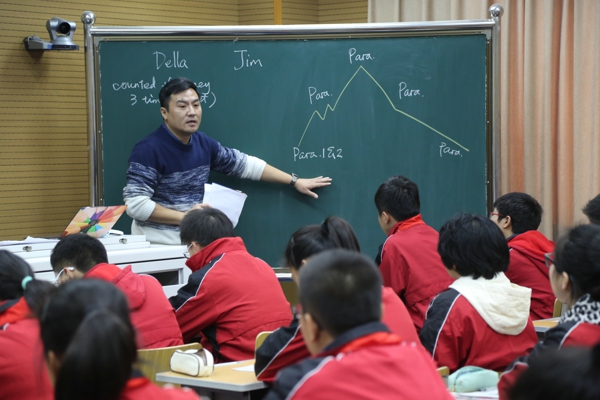 Della
Jim
counted
3 times
Para.
Para.
Para.
Para. 1&2
Para.